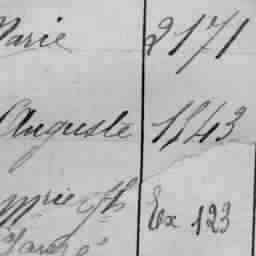 Marie 2171
Auguste 1143
Mrie Jh Ex 123